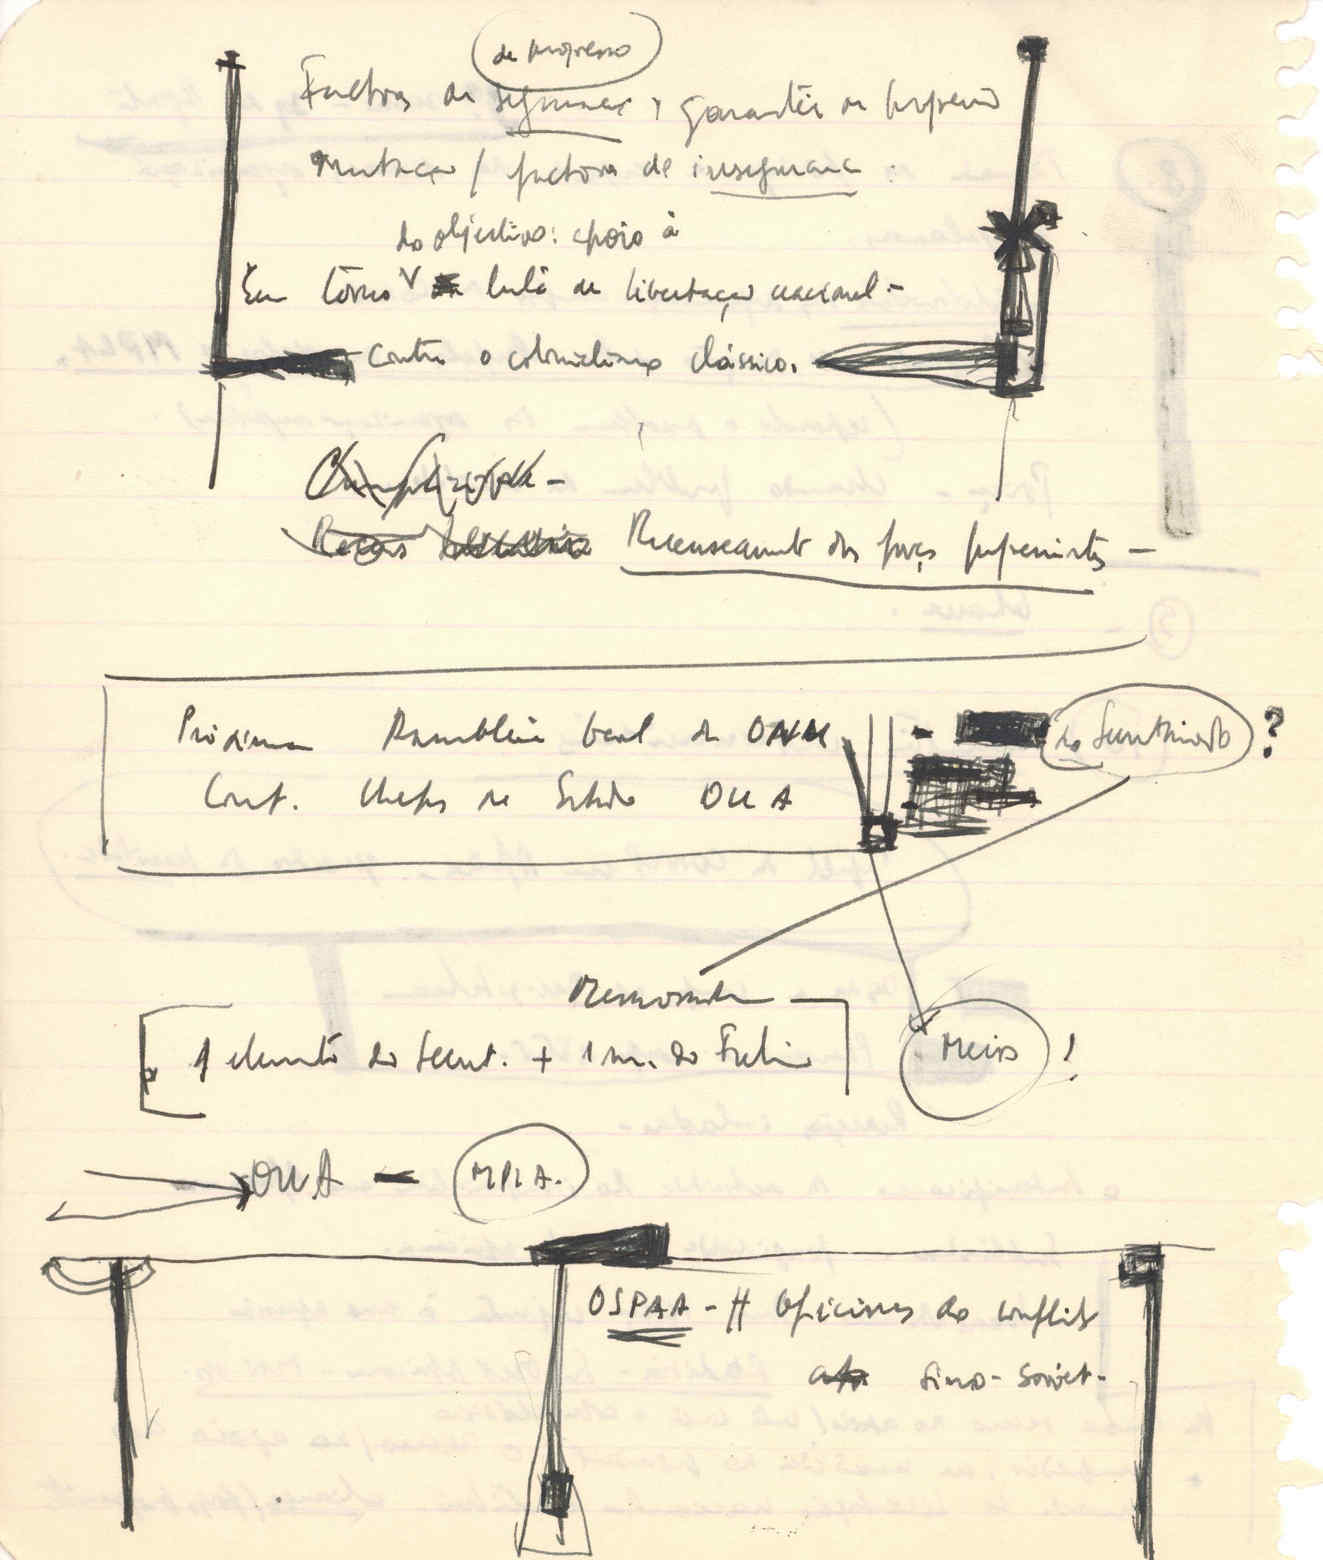 de progresso
Factores de segurança, garantia de
Mutação / factores de insegurança.
do objectivo: apoio à
Em torno luta de libertação nacional -
Contra o colonialismo clássico.
Recenseamento das forças progressistas -
Próxima Assembleia Geral da ONU - do Secretariado ?
Conf. Chefes de Estado OUA
1 elemento do Secret. + 1 m. do
Meios !
OUA - MPLA.
OSPAA - # do conflito
sino-soviet-